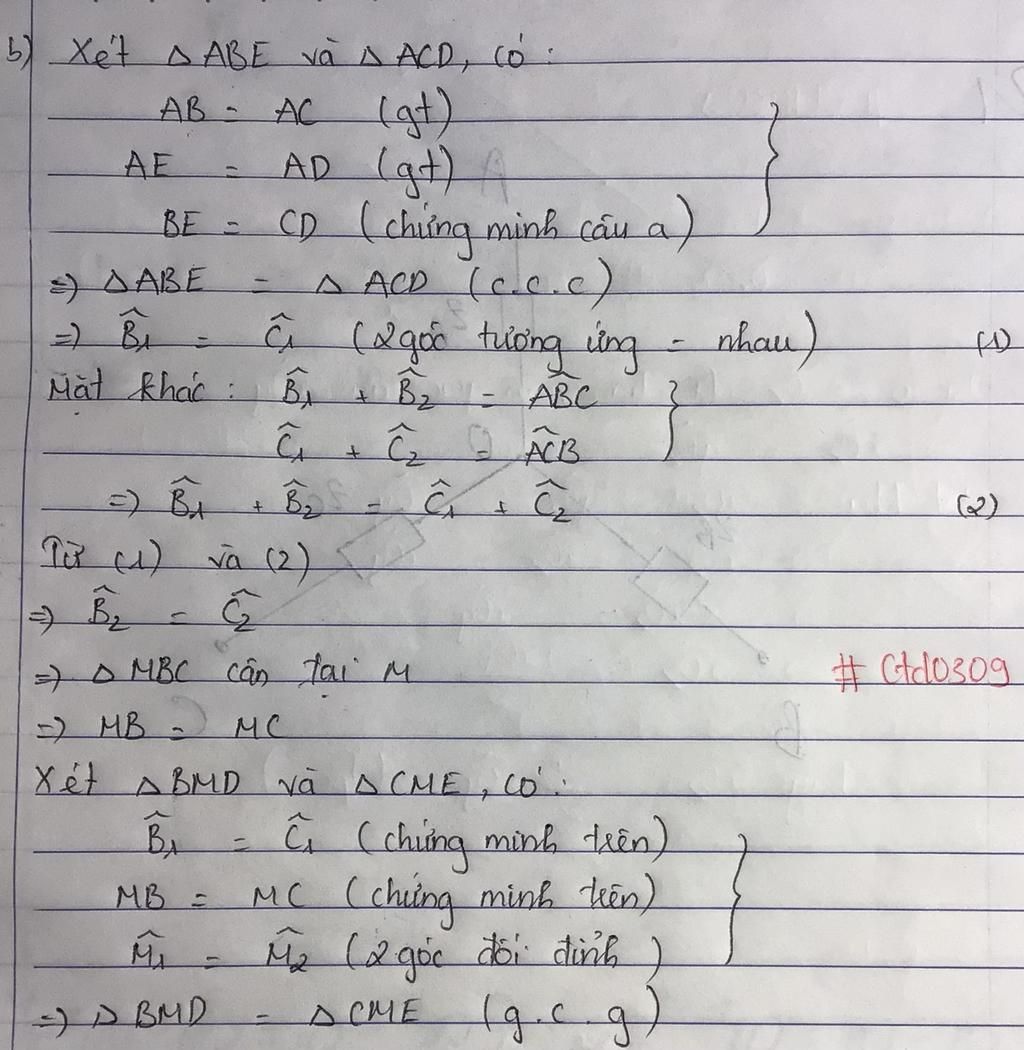 b) Xét △ABE và △ACD, có:
AB = AC (gt)
AE = AD (gt)
BE = CD (chứng minh câu a)
=> △ABE = △ACD (c.c.c)
=> B̂₁ = Ĉ₁ (2 góc tương ứng = nhau) (1)
Mặt khác: B̂₁ + B̂₂ = ABC̑
Ĉ₁ + Ĉ₂ = ACB̑
=> B̂₁ + B̂₂ = Ĉ₁ + Ĉ₂ (2)
Từ (1) và (2)
=> B̂₂ = Ĉ₂
=> △MBC cân tại M
# Ctd0309
=> MB = MC
Xét △BMD và △CME, có:
B̂₁ = Ĉ₁ (chứng minh trên)
MB = MC (chứng minh trên)
M̂₁ = M̂₂ (2 góc đối đỉnh)
=> △BMD = △CME (g.c.g)